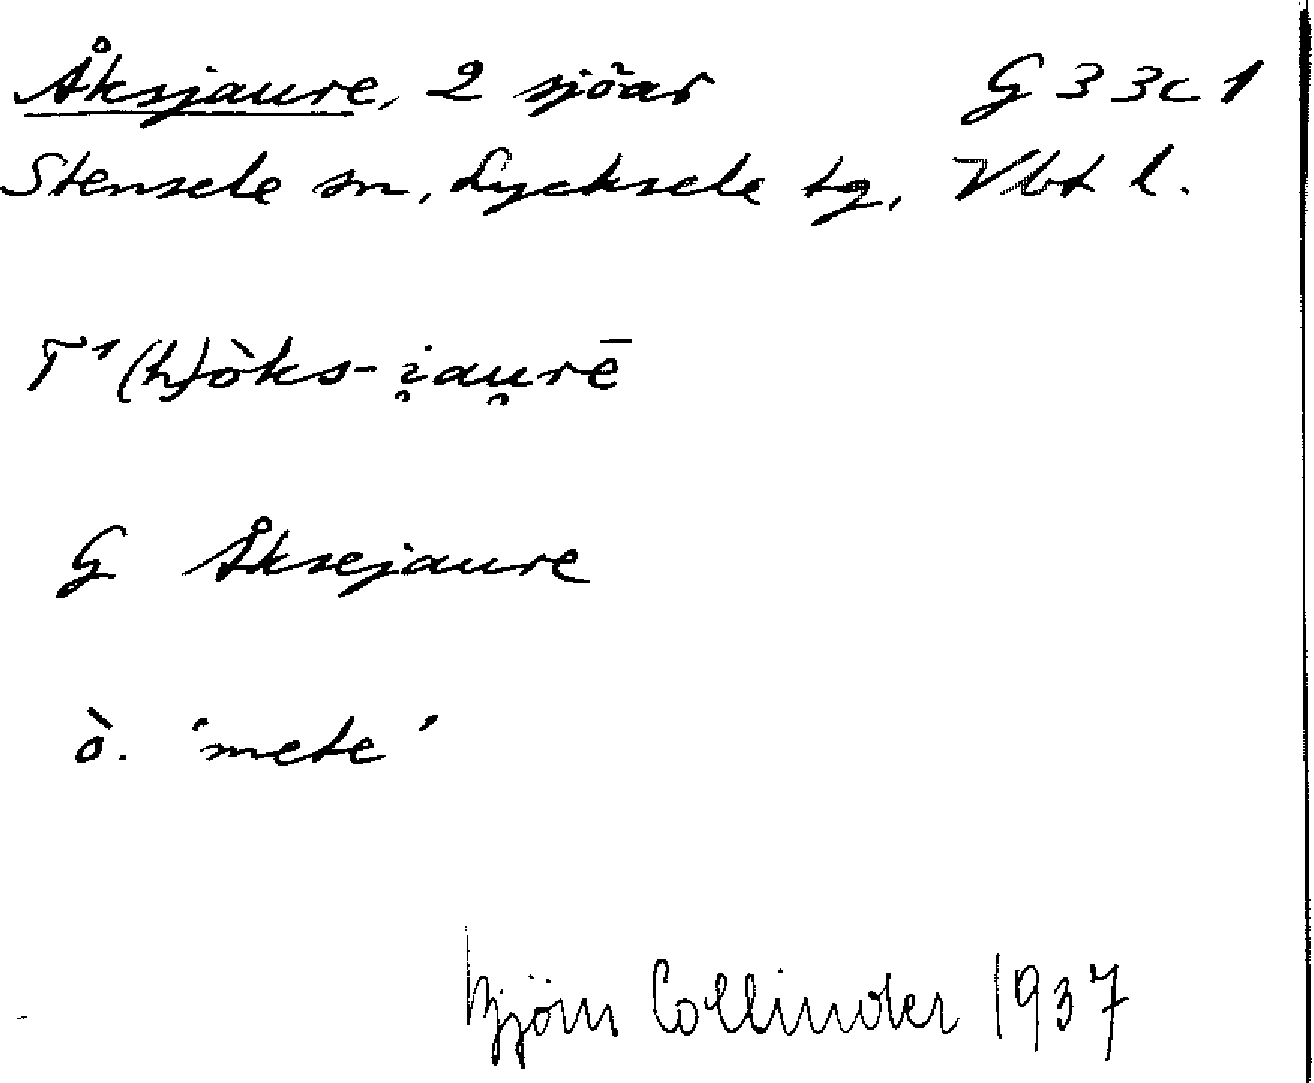 Åksjaure, 2 sjöar G 33c 1
Stensele sn, Lycksele tg, Vbt l.
T¹ (h)òks-i̯au̯rē
G Åksejaure
ò. 'mete'
Björn Collinder 1937